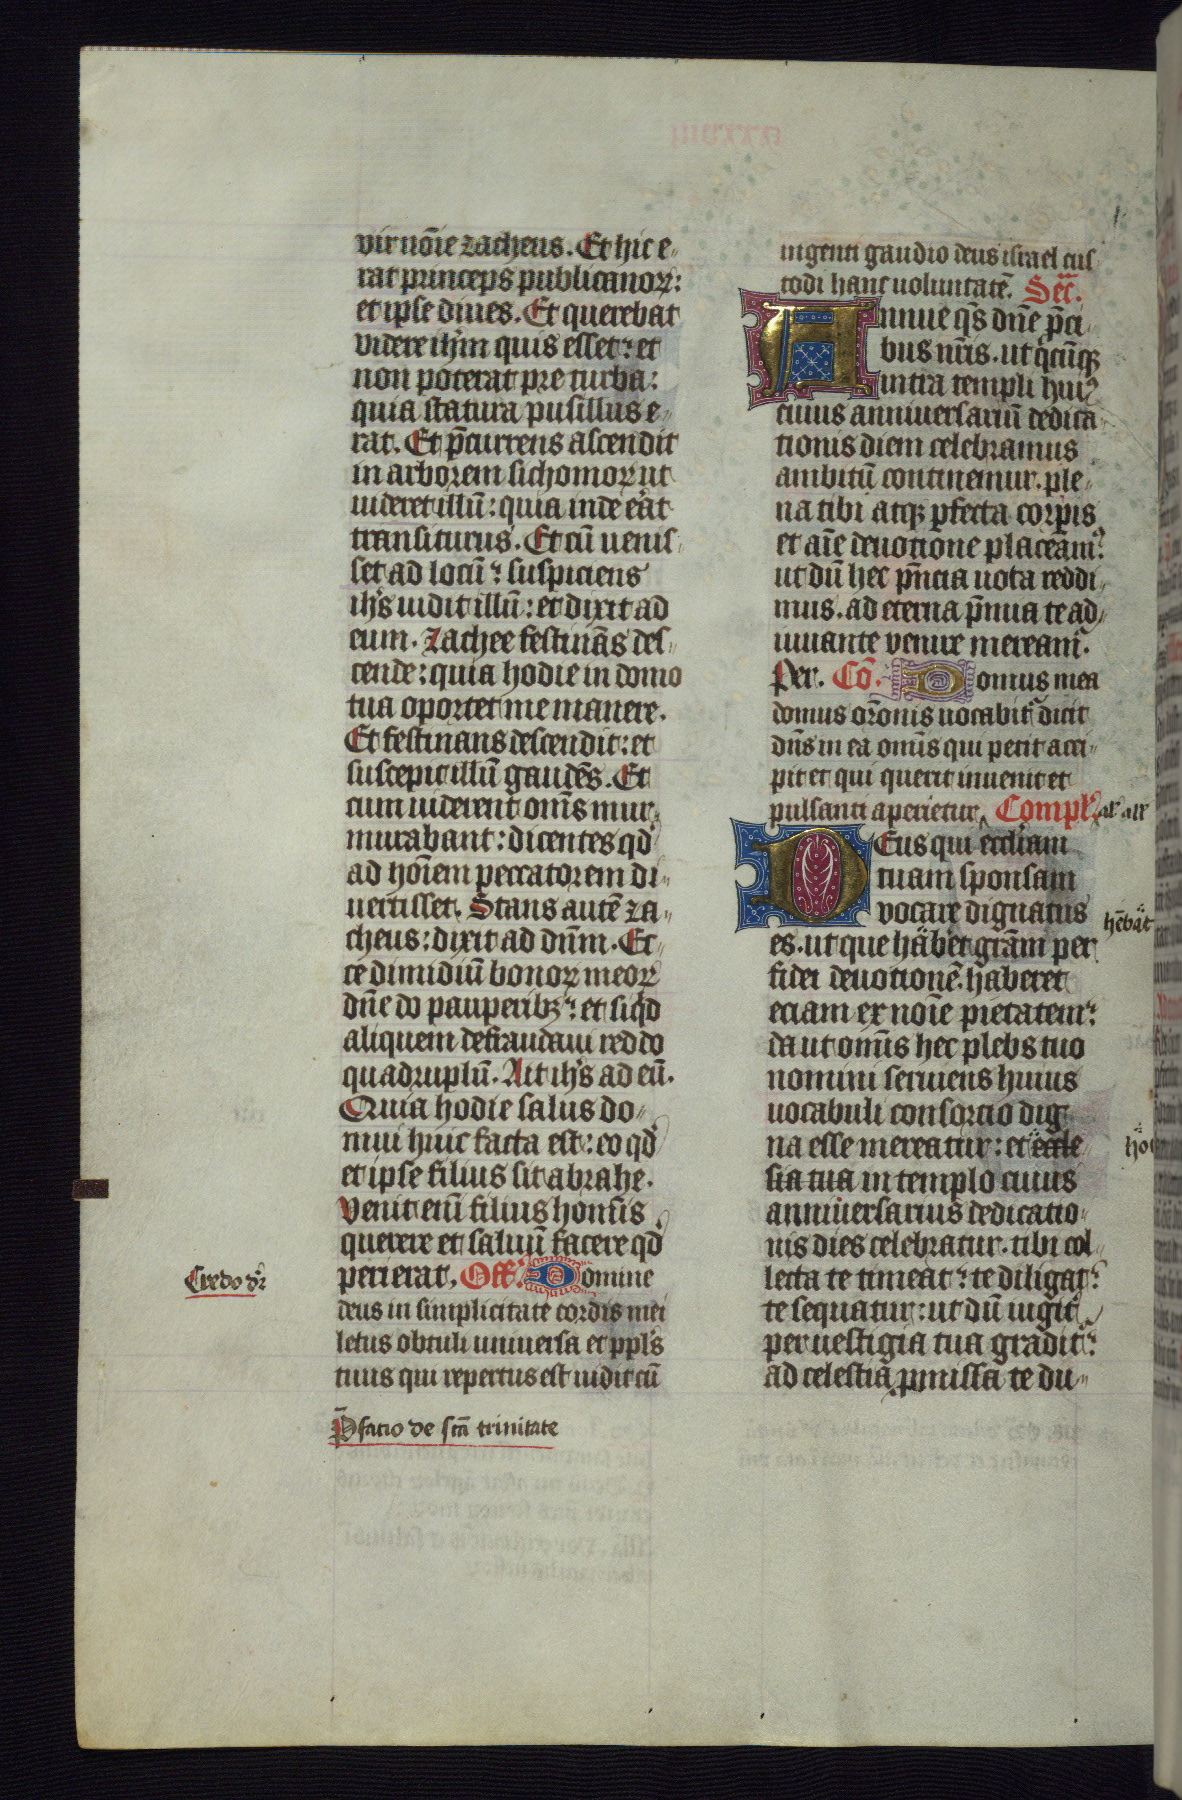 vir noīe zacheus. Et hic e-
rat princeps publicanoꝝ:
et ipse diues. Et querebat
videre ih̄m quis esset: et
non poterat pre turba:
quia statura pusillus e-
rat. Et p̄currens ascendit
in arborem sichomoꝝ ut
uideret illū: quia inde eāt
transiturus. Et cū uenis-
set ad locū: suspiciens
ih̄s uidit illū: et dixit ad
eum. Zachee festinās des-
cende: quia hodie in domo
tua oportet me manere.
Et festinans descendit: et
suscepit illū gaudēs. Et
cum uiderent om̄s mur-
murabant: dicentes qd̄
ad hoīem peccatorem di-
uertisset. Stans autē za-
cheus: dixit ad dnm̄. Ec-
ce dimidiū bonoꝝ meoꝝ
dn̄e do pauperibꝫ: et siqd̄
aliquem defraudaui reddo
quadruplū. Ait ih̄s ad eū.
Quia hodie salus do-
mui huic facta est: eo qd̄
et ipse filius sit abrahe.
Venit eni filius homīs
querere et saluū facere qd̄
perierat. Off. Domine
deus in simplicitate cordis mei
letus obtuli uniuersa et ppl̄s
tuus qui repertus est uidit cū
Credo dr̄
P̄fatio de scā trinitate
ingenti gaudio deus israel cus-
todi hanc uoluntatē. Sec̄.
Annue qs̄ dn̄e p̄ci-
bus nr̄is. ut qͥcūqꝫ
intra templi huiꝰ
cuius anniuersariū dedica-
tionis diem celebramus
ambitū continemur. ple-
na tibi atqꝫ ꝑfecta corꝑis
et aīe deuotione placeam᷑:
ut dū hec p̄ncia uota reddi-
mus. ad eterna p̄mia te ad-
iuuante venire meream᷑.
Per. Cō. Domus mea
domus or̄onis uocabit᷑ dicit
dn̄s in ea omīs qui petit acci-
pit et qui querit inuenit et
pulsanti aperietur. Compl̄.
Deus qui eccl̄iam
tuam sponsam
vocare dignatus
hēbat
es. ut que haberet grām per
fidei deuotionē. haberet
eciam ex noīe pietatem:
da ut omīs hec plebs tuo
nomini seruiens huius
uocabuli consorcio dig-
na esse mereatur: et eccle-
sia tua in templo cuius
anniuersarius dedicatio-
nis dies celebratur. tibi col-
lecta te timeat: te diligat:
te sequatur: ut dū iugit᷑
per uestigia tua gradit᷑:
ad celestia ꝓmissa te du-